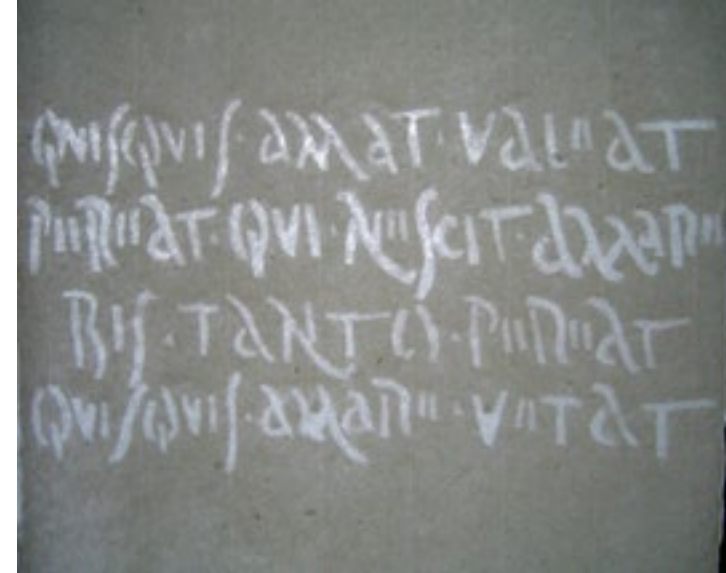 QVISQVIS·AMAT·VALEAT
PEREAT·QVI·NESCIT·AMARE
BIS·TANTO·PEREAT
QVISQVIS·AMARE·VETAT